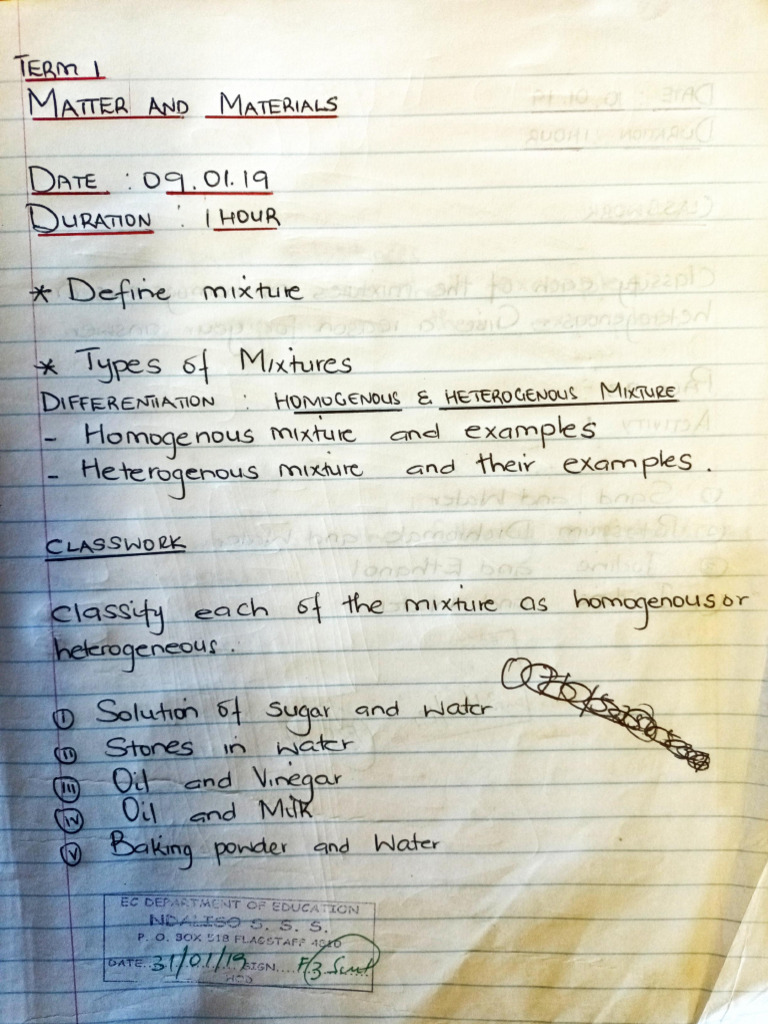 TERM 1
MATTER AND MATERIALS
DATE : 09.01.19
DURATION : 1 HOUR
* Define mixture
* Types of Mixtures
DIFFERENTIATION : HOMOGENOUS & HETEROGENOUS MIXTURE
- Homogenous mixture and examples
- Heterogenous mixture and their examples.
CLASSWORK
Classify each of the mixture as homogenous or
heterogeneous.
(i) Solution of sugar and water
(ii) Stones in water
(iii) Oil and Vinegar
(iv) Oil and Milk
(v) Baking powder and Water
EC DEPARTMENT OF EDUCATION
NDALISO S. S. S.
P. O. BOX 518 FLAGSTAFF 4810
DATE..31/01/19 SIGN....
HOD